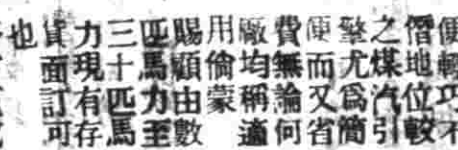 便輕巧不
僭地位較
之煤汽引
擎尤爲簡
便而又省
費無論何
廠均稱適
用倘蒙
賜顧由數
匹馬力至
三十匹馬
力現有存
貨面訂可
也